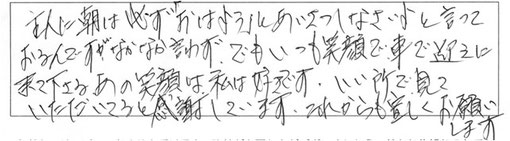 主人に朝は必ず"おはよう"とあいさつしなさいよと言って
おるんですがなかなか言わず、でもいつも笑顔で車で迎えに
来て下さるあの笑顔は私は好きです。いい所で見て
いただいてると感謝しています。これからも宜しくお願い
します